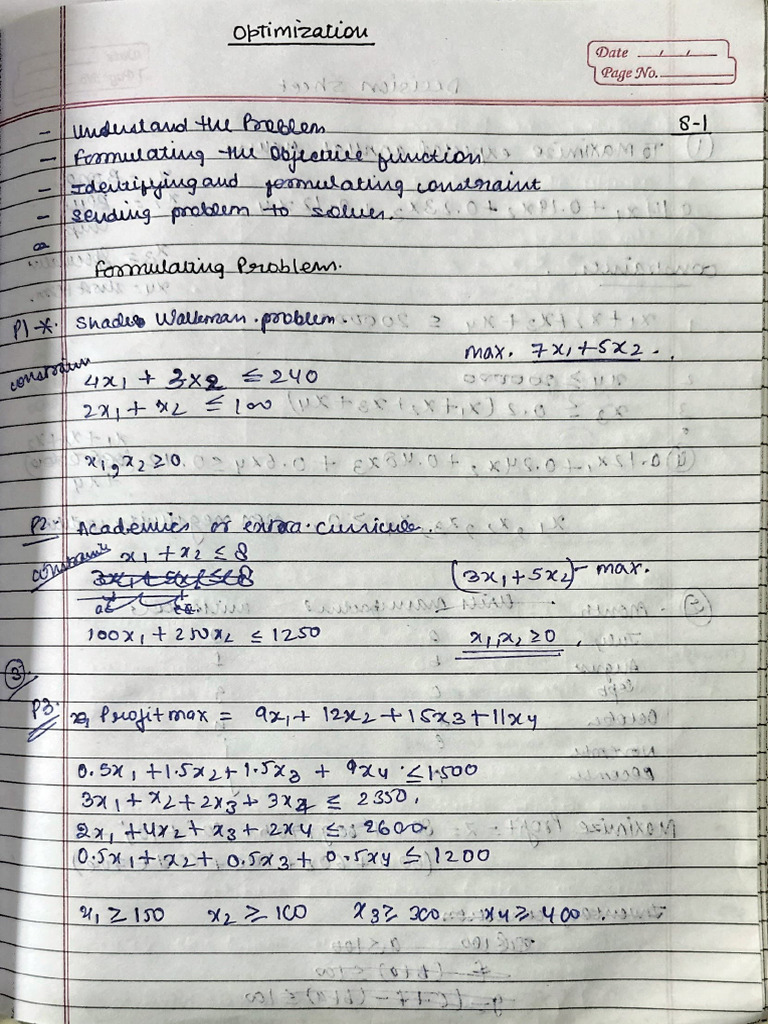 Optimization
Date
Page No.
8-1
- Understand the Problem
- Formulating the Objective function
- Identifying and formulating constraint
- Sending problem to solver.
Formulating Problem.
P1 *. Shades Walkman problem.
max. 7x1 + 5x2.
constrain
4x1 + 3x2 ≤ 240
2x1 + x2 ≤ 100
x1, x2 ≥ 0.
P2. Academics or extra curricula.
constraints x1 + x2 ≤ 8
(3x1 + 5x2) - max.
100x1 + 250x2 ≤ 1250 x1, x2 ≥ 0.
③
P3. Profit max = 9x1 + 12x2 + 15x3 + 11x4
0.5x1 + 1.5x2 + 1.5x3 + 9x4 ≤ 1500
3x1 + x2 + 2x3 + 3x4 ≤ 2350.
2x1 + 4x2 + x3 + 2x4 ≤ 2600
0.5x1 + x2 + 0.5x3 + 0.5x4 ≤ 1200
x1 ≥ 150 x2 ≥ 100 x3 ≥ 300 x4 ≥ 400.